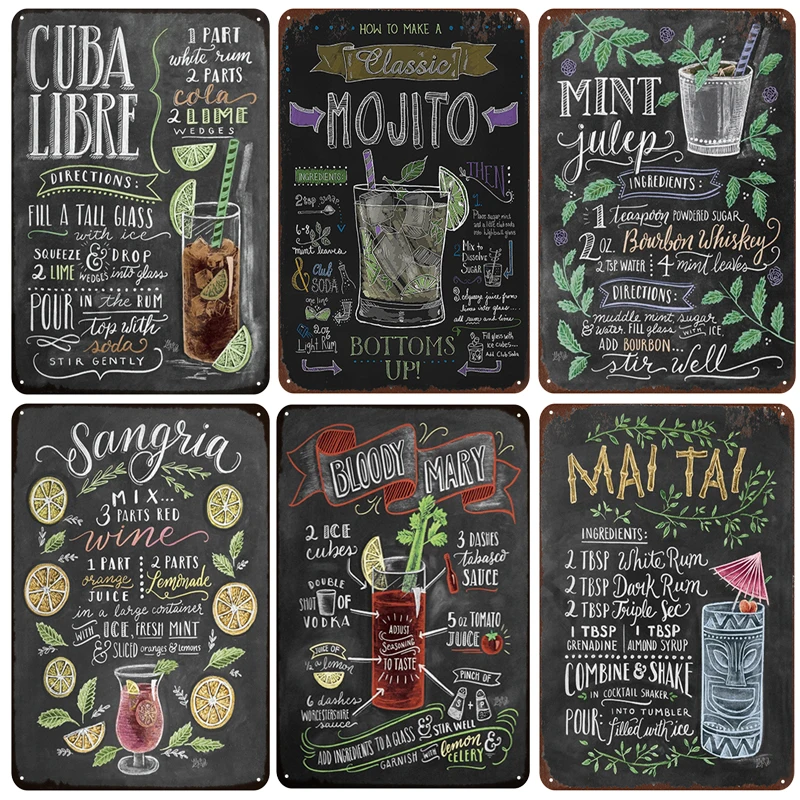 CUBA
LIBRE
1 PART
white rum
2 PARTS
cola
2 LIME
WEDGES
DIRECTIONS:
FILL A TALL GLASS
with ice
SQUEEZE & DROP
2 LIME WEDGES into glass
POUR IN the RUM
top with
soda
STIR GENTLY
HOW TO MAKE A
Classic
MOJITO
INGREDIENTS:
2 tsp sugar
6-8
mint leaves
& Club
SODA
one lime
2 oz
Light Rum
THEN
1
Place sugar mint
and a little club soda
into highball glass
2 Mix to
Dissolve
Sugar
3 squeeze juice from
lime into glass...
add rum and lime
Fill glass with
ice cubes...
Add Club Soda
BOTTOMS
UP!
MINT
julep
INGREDIENTS:
1 teaspoon POWDERED SUGAR
2 OZ. Bourbon Whiskey
2 TSP WATER 4 mint leaves
DIRECTIONS:
muddle mint, sugar
& water. FILL glass WITH ICE,
ADD BOURBON...
stir well
Sangria
MIX...
3 PARTS RED
wine
1 PART
orange
JUICE
2 PARTS
Lemonade
in a large container
WITH ICE, FRESH MINT
& SLICED oranges & lemons
BLOODY MARY
2 ICE
cubes
3 DASHES
tabasco
SAUCE
DOUBLE
SHOT OF
VODKA
ADJUST
SEASONING
TO TASTE
5 oz TOMATO
JUICE
JUICE OF
1/2 a lemon
PINCH OF
S + P
6 dashes
WORCESTERSHIRE
sauce
ADD INGREDIENTS TO A GLASS & STIR WELL
GARNISH WITH lemon &
CELERY
MAI TAI
INGREDIENTS:
2 TBSP White Rum
2 TBSP Dark Rum
2 TBSP Triple Sec
1 TBSP
GRENADINE
1 TBSP
ALMOND SYRUP
COMBINE & SHAKE
IN COCKTAIL SHAKER
POUR INTO TUMBLER
filled with ice